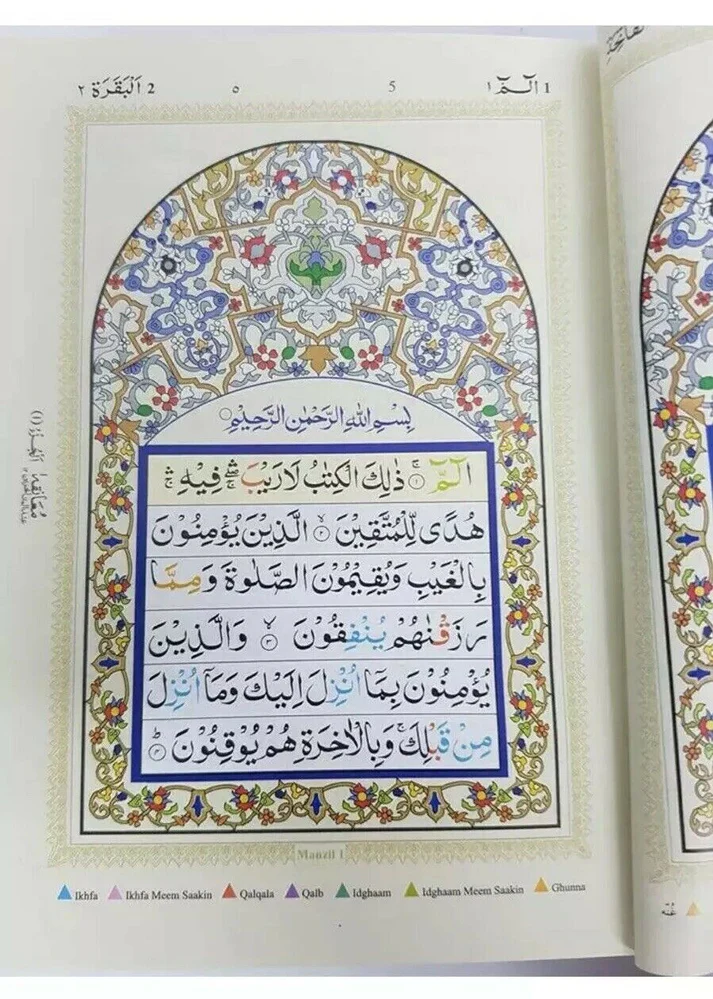 الٓمّٓ ١ 1
5
٥
اَلْبَقَرَة ٢ 2
بِسْمِ اللّٰهِ الرَّحْمٰنِ الرَّحِيْمِ
الٓمّٓ ۚ﴿١﴾ ذٰلِكَ الْكِتٰبُ لَا رَيْبَ ۛۖ فِيْهِ ۛۚ
هُدًى لِّلْمُتَّقِيْنَ ۙ﴿٢﴾ الَّذِيْنَ يُؤْمِنُوْنَ
بِالْغَيْبِ وَيُقِيْمُوْنَ الصَّلٰوةَ وَمِمَّا
رَزَقْنٰهُمْ يُنْفِقُوْنَ ۙ﴿٣﴾ وَالَّذِيْنَ
يُؤْمِنُوْنَ بِمَاۤ اُنْزِلَ اِلَيْكَ وَمَاۤ اُنْزِلَ
مِنْ قَبْلِكَ ۚ وَبِالْاٰخِرَةِ هُمْ يُوْقِنُوْنَ ؕ﴿٤﴾
Manzil 1
Ikhfa Ikhfa Meem Saakin Qalqala Qalb Idghaam Idghaam Meem Saakin Ghunna
غنه